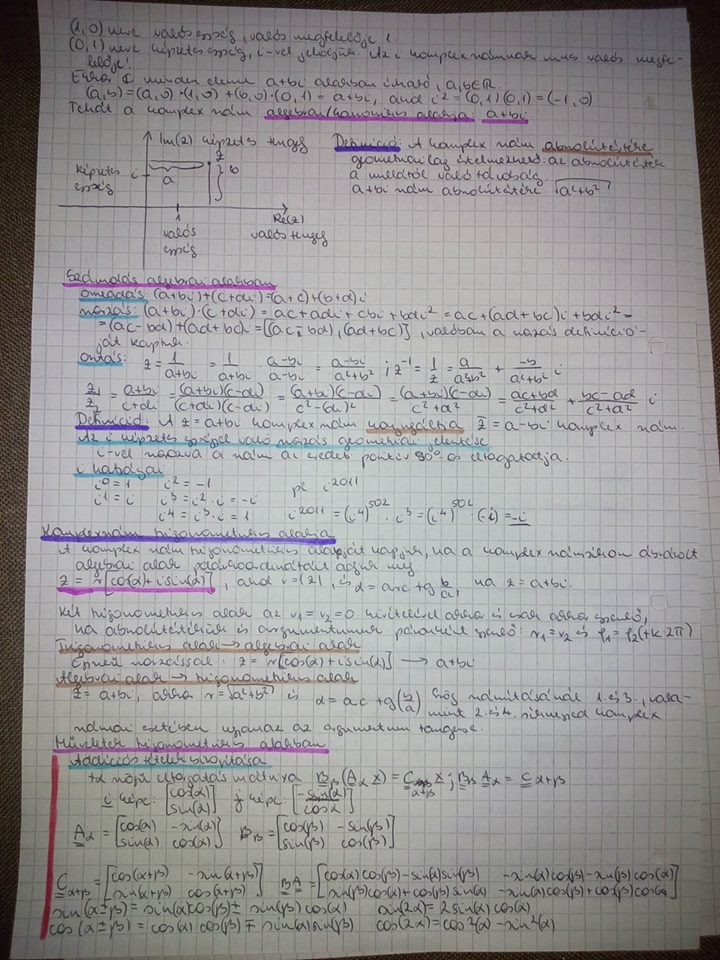 (1,0) neve valós egység, valós megfelelője 1.
(0,1) neve képzetes egység, i-vel jelöljük. Az i komplex számnak nincs valós megfe-
lelője!
Ekkor ℂ minden eleme a+bi alakban írható, a,b∈ℝ.
(a,b)=(a,0)·(1,0)+(b,0)·(0,1)=a+bi, ahol i²=(0,1)(0,1)=(-1,0)
Tehát a komplex szám algebrai/kanonikus alakja a+bi
Im(z) képzetes tengely
képzetes egység
i
z
a
b
1
valós egység
Re(z)
valós tengely
Definíció: A komplex szám abszolútértéke
geometriailag értelmezhető: az abszolútérték
a nullától való távolság
a+bi szám abszolútértéke √(a²+b²)
Számolás algebrai alakban
összeadás (a+bi)+(c+di)=(a+c)+(b+d)i
szorzás: (a+bi)·(c+di)=ac+adi+cbi+bdi²=ac+(ad+bc)i+bdi²=
=(ac-bd)+(ad+bc)i=[(ac-bd),(ad+bc)], valóban a szorzás definíció-
ját kaptuk.
osztás: z=1/(a+bi)=1/(a+bi)·(a-bi)/(a-bi)=(a-bi)/(a²+b²); z⁻¹=1/z=a/(a²+b²)+(-b)/(a²+b²) i
z₁/z₂=(a+bi)/(c+di)=(a+bi)(c-di)/(c+di)(c-di)=(a+bi)(c-di)/(c²-(di)²)=(a+bi)(c-di)/(c²+d²)=(ac+bd)/(c²+d²)+(bc-ad)/(c²+d²) i
Definíció: A z=a+bi komplex szám konjugáltja z̄=a-bi komplex szám.
Az i képzetes egységgel való szorzás geometriai jelentése
i-vel szorozva a szám az eredeti pozitív 90°-os elforgatottja.
i hatványai
i⁰=1 i²=-1 pl i²⁰¹¹
i¹=i i³=i²·i=-i
i⁴=i³·i=1 i²⁰¹¹=(i⁴)⁵⁰²·i³=(i⁴)⁵⁰²·(-i)=-i
Komplex szám trigonometrikus alakja
A komplex szám trigonometrikus alakját kapjuk, ha a komplex számsíkon ábrázolt
algebrai alak polárkoordinátáit adjuk meg
z=r[cos(α)+i sin(α)], ahol r=|z|, és α=arc tg b/a, ha z=a+bi.
Két trigonometrikus alak az r₁=r₂=0 kivételével akkor és csak akkor egyenlő,
ha abszolútértékük és argumentumuk páronként egyenlő: r₁=r₂ és φ₁=φ₂(+k·2π)
Trigonometrikus alak→algebrai alak
z=r[cos(α)+i sin(α)] → a+bi
Algebrai alak→trigonometrikus alak
z=a+bi, akkor r=√(a²+b²) és α=arc tg(b/a) szög számításánál 1. és 3., vala-
mint 2. és 4. síknegyed komplex
számai esetében ugyanaz az argumentum tangense.
Műveletek trigonometrikus alakban
Addíciós tételek
+α szögű elforgatás mátrixa B_β(A_α x)=C_α+β x; B_β A_α=C_α+β
i képe: [cos(α) sin(α)] j képe: [-sin(α) cosα]
A_α=[cos(α) -sin(α) sin(α) cos(α)] B_β=[cos(β) -sin(β) sin(β) cos(β)]
C_α+β=[cos(α+β) -sin(α+β) sin(α+β) cos(α+β)] BA=[cos(α)cos(β)-sin(α)sin(β) -sin(α)cos(β)-sin(β)cos(α) sin(β)cos(α)+cos(β)sin(α) -sin(α)cos(β)+cos(β)cosα]
sin(α±β)=sin(α)cos(β)±sin(β)cos(α) sin(2α)=2sin(α)cos(α)
cos(α±β)=cos(α)cos(β)∓sin(α)sin(β) cos(2α)=cos²(α)-sin²(α)